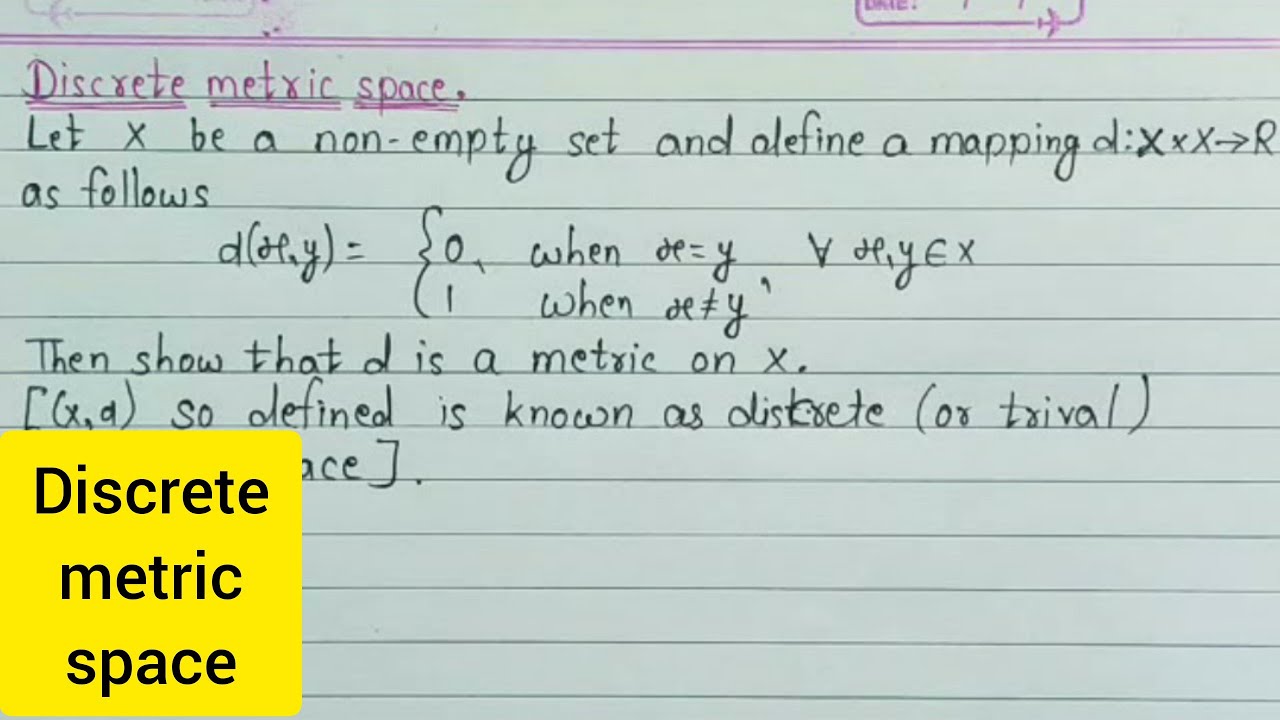 DATE:
Discrete metric space.
Let X be a non-empty set and define a mapping d:X×X→R
as follows
d(x,y) = {0, when x=y ∀ x,y∈X
1 when x≠y,
Then show that d is a metric on X.
[(X,d) so defined is known as diskrete (or trival)
ace].
Discrete
metric
space